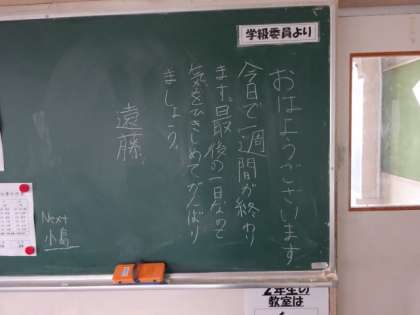 学級委員より
おはようございます
今日で一週間が終わり
ます。最後の一日なので
気をひきしめてがんばり
ましょう。
遠藤
Next
小島
2年生の
教室は